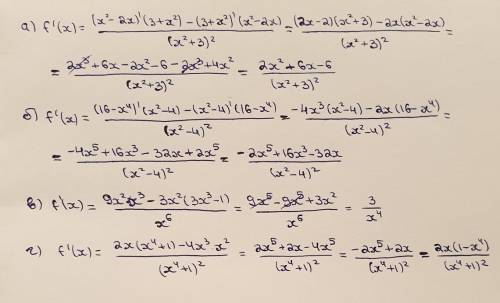 а) f'(x) = ((x²-2x)'(3+x²) - (3+x²)'(x²-2x))/(x²+3)² = ((2x-2)(x²+3) - 2x(x²-2x))/(x²+3)² =
= (2x³+6x-2x²-6-2x³+4x²)/(x²+3)² = (2x²+6x-6)/(x²+3)²
б) f'(x) = ((16-x⁴)'(x²-4) - (x²-4)'(16-x⁴))/(x²-4)² = (-4x³(x²-4) - 2x(16-x⁴))/(x²-4)² =
= (-4x⁵+16x³-32x+2x⁵)/(x²-4)² = (-2x⁵+16x³-32x)/(x²-4)²
в) f'(x) = (9x²x³ - 3x²(3x³-1))/x⁶ = (9x⁵-9x⁵+3x²)/x⁶ = 3/x⁴
г) f'(x) = (2x(x⁴+1) - 4x³x²)/(x⁴+1)² = (2x⁵+2x-4x⁵)/(x⁴+1)² = (-2x⁵+2x)/(x⁴+1)² = 2x(1-x⁴)/(x⁴+1)²